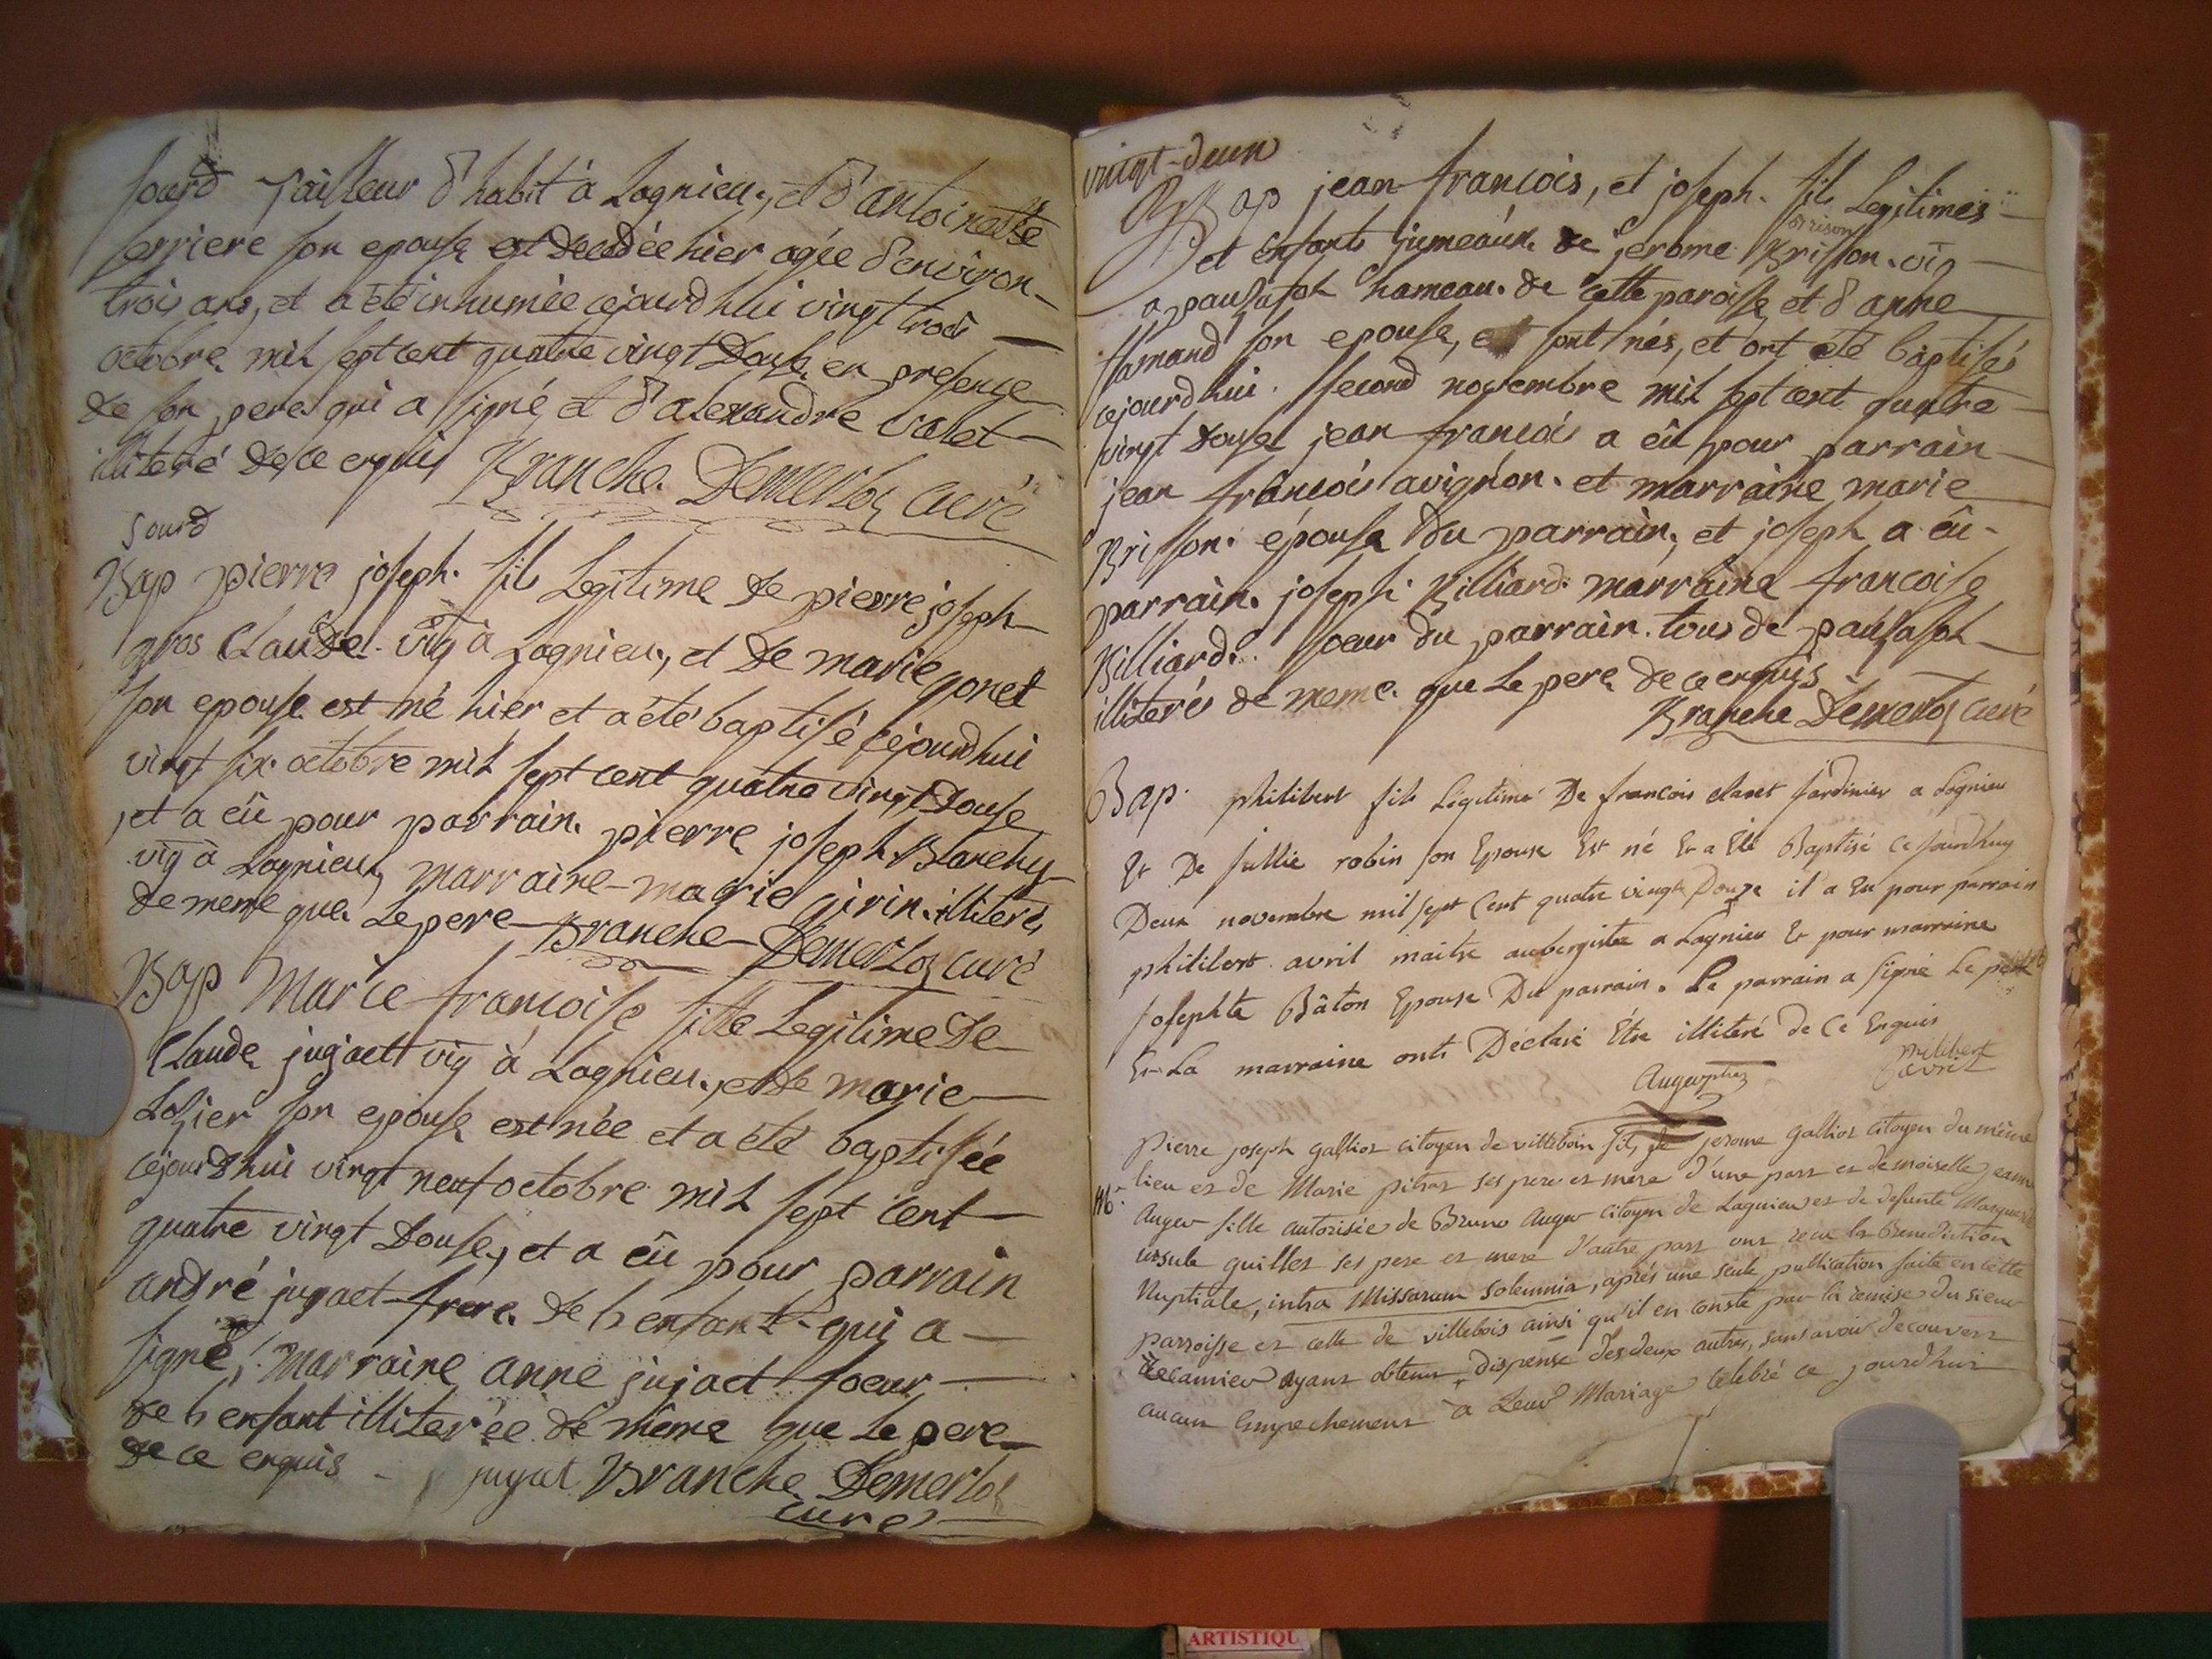 sourd tailleur d'habit à Lagnieu, et d'antoinette
ferriere son epouse est decedée hier agée d'environ
trois ans, et a été inhumée cejourdhui vingt trois
octobre mil sept cent quatre vingt douse en presence
de son pere qui a signé et d'alexandre valet
illiteré de ce enquis Branche Demerloz curé
sourd
Bap pierre joseph fils Legitime de pierre joseph
gros Claude vig à Lagnieu, et de marie gonet
son epouse est né hier et a été baptisé cejourdhui
vingt six octobre mil sept cent quatre vingt douse
et a eû pour parrain pierre joseph Blanchy
vig à Lagnieu, marraine marie girin illiterés
de meme que Le pere Branche Demerloz curé
Bap Marie francoise fille Legitime de
Claude jujact vig à Lagnieu, et de marie
Lozier son epouse est née et a été baptisée
cejourdhui vingt neuf octobre mil sept cent
quatre vingt douse, et a eû pour parrain
andré jujact frere de l'enfant qui a
signé, marraine anne jujact soeur
de l'enfant illiterée de même que Le pere
de ce enquis jujat Branche Demerloz
curé
vingt-deux
Bap jean francois, et joseph fils Legitimes
brisson
et enfants jumeaux de jerome Brisson vig
a pausafol hameau de cette paroisse et d'anne
flamand son epouse, sont nés, et ont été baptisés
cejourdhui second novembre mil sept cent quatre
vingt douse jean francois a eû pour parrain
jean francois avignon et marraine marie
Brisson épouse du parrain, et joseph a eû
parrain joseph Billiard marraine francoise
Billiard soeur du parrain tous de pausafol
illiterés de meme que Le pere de ce enquis
Branche Demerloz curé
Bap. philibert fils Légitime De francois claret jardinier a Lagnieu
Et De jullie robin son Epouse Est né Et a Eté Baptisé ce jourdhuy
Deux novembre mil sept Cent quatre vingt Douze il a Eu pour parrain
philibert avril maitre aubergiste a Lagnieu Et pour marraine
josephte Bâton Epouse Du parrain. Le parrain a signé Le pere
Et La marraine ont Déclaré Être illiteré de Ce Enquis
philibert
Auger ptre avril
Pierre joseph gallioz citoyen de villebois fils de jerome gallioz citoyen du même
lieu et de Marie pitrat ses pere et mere d'une part et demoiselle jeanne
M. Auger fille autorisée de Bruno Auger citoyen de Lagnieu et de defunte Marguerite
ursule guillet ses pere et mere d'autre part ont recu la Benediction
Nuptiale, intra Missarum solemnia, après une seule publication faite en cette
parroisse et celle de villebois ainsi qu'il en conste par la remise du sieur
Recamier ayant obtenu dispense des deux autres, sans avoir decouvert
aucun Empechement à Leur Mariage Celebré ce jourdhui
ARTISTIQU